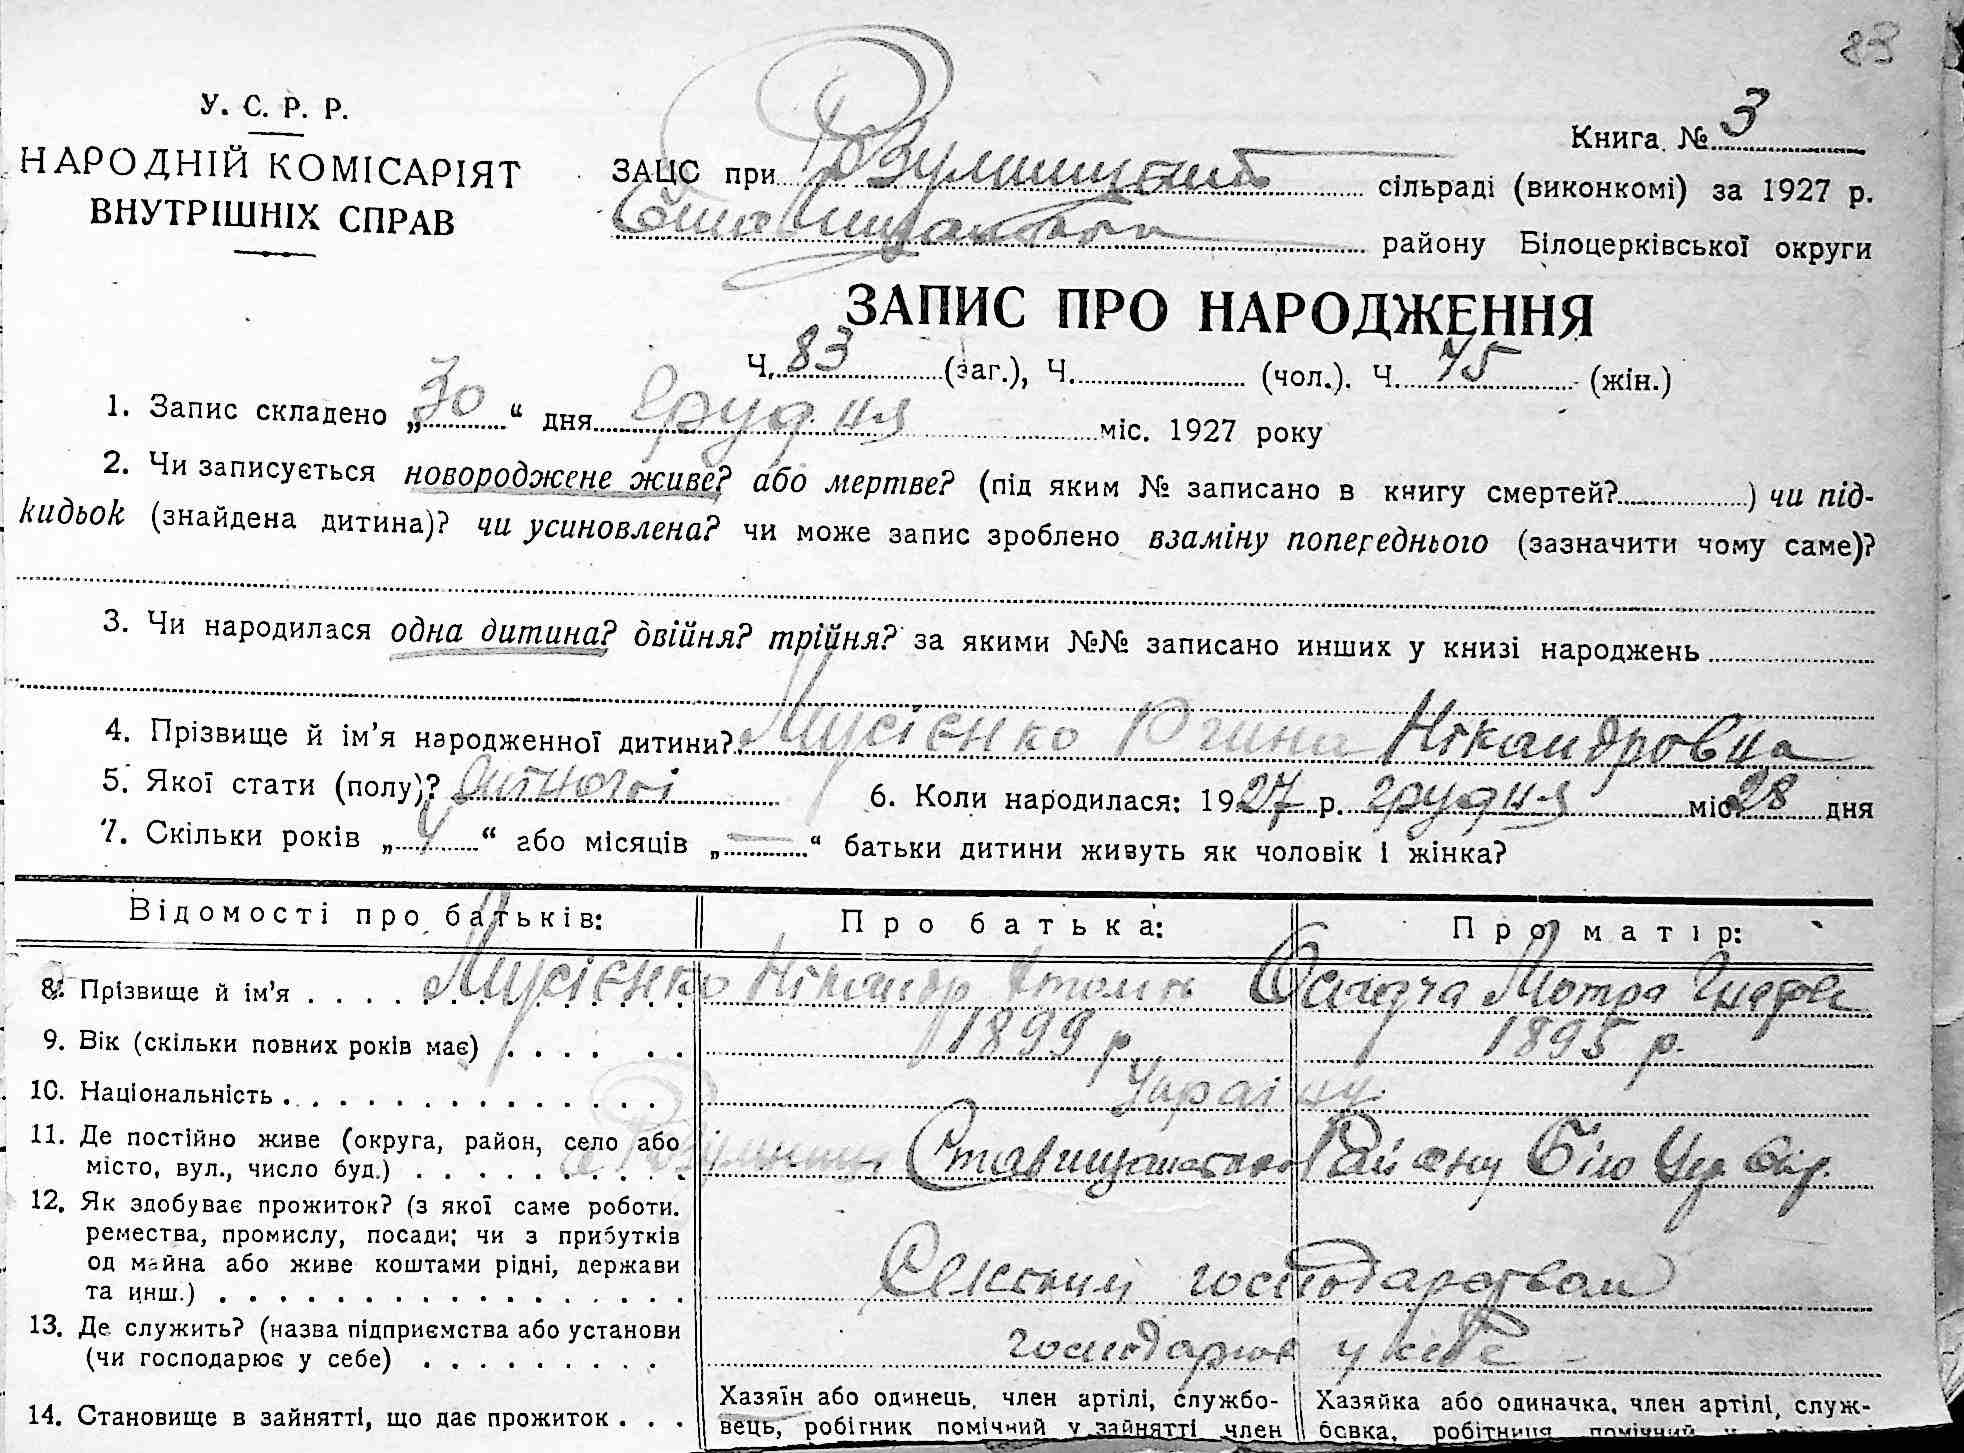 83
У. С. Р. Р.
НАРОДНІЙ КОМІСАРІЯТ
ВНУТРІШНІХ СПРАВ
Книга № 3
ЗАЦС при Розумницький сільраді (виконкомі) за 1927 р.
Ставищанського району Білоцерківської округи
ЗАПИС ПРО НАРОДЖЕННЯ
Ч. 83 (заг.), Ч. (чол.). Ч. 45 (жін.)
1. Запис складено „30“ дня грудня міс. 1927 року
2. Чи записується новороджене живе? або мертве? (під яким № записано в книгу смертей? ) чи під-
кидьок (знайдена дитина)? чи усиновлена? чи може запис зроблено взаміну попереднього (зазначити чому саме)?
3. Чи народилася одна дитина? двійня? трійня? за якими №№ записано инших у книзі народжень
4. Прізвище й ім'я народженної дитини? Мусієнко Югина Нікандровна
5. Якої стати (полу)? жіночої 6. Коли народилася: 1927 р. грудня міс 28 дня
7. Скільки років „4“ або місяців „—“ батьки дитини живуть як чоловік і жінка?
Відомості про батьків: Про батька: Про матір:
8. Прізвище й ім'я . . . . Мусієнко Нікандр Мотра
9. Вік (скільки повних років має) . . . . . . 1899 р. 1895 р.
10. Національність . . . . . . . . . . . . . . Україн ці
11. Де постійно живе (округа, район, село або
місто, вул., число буд.) . . . . . . . . . . с Розумниця Ставищанського Району Біло Цер окр.
12. Як здобуває прожиток? (з якої саме роботи.
ремества, промислу, посади; чи з прибутків
од майна або живе коштами рідні, держави
та инш.) . . . . . . . . . . . . . . . . . Сельским господарством
13. Де служить? (назва підприємства або установи
(чи господарює у себе) . . . . . . . . . господарює у себе
14. Становище в зайнятті, що дає прожиток . . .
Хазяїн або одинець, член артілі, службо-
вець, робігник помічний у зайнятті член
Хазяйка або одиначка, член артілі, служ-
бовка, робітниця помічний у